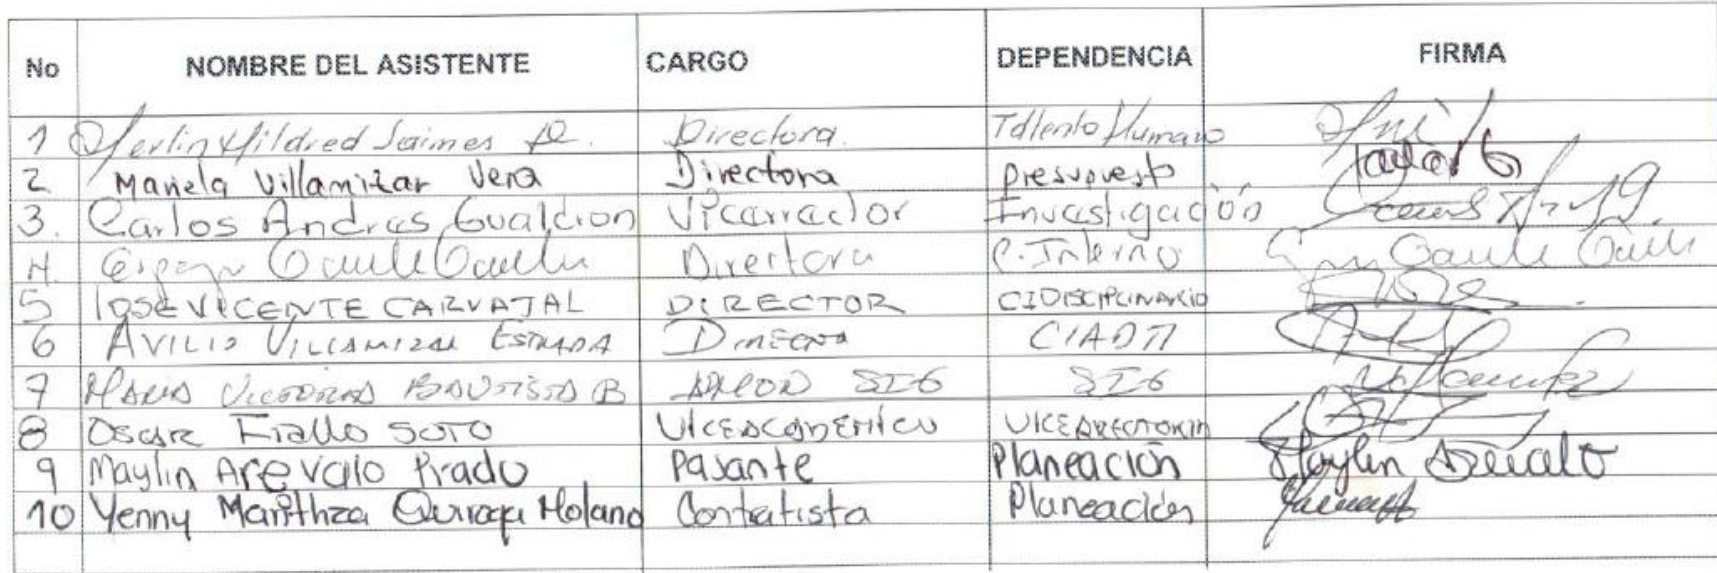 No NOMBRE DEL ASISTENTE CARGO DEPENDENCIA FIRMA
1 Mildred Jaimes Directora. Talento Humano
2 Mariela Villamizar Vera Directora Presupuesto
3. Carlos Andres Gualdron Vicerrector Investigación
4. Directora C. Interno
5 JOSE VICENTE CARVAJAL DIRECTOR CIDISCIPLINARIO
6 AVILIO VILLAMIZAR ESTRADA DIRECTOR CIADTI
7 MARIA VICTORIA BAUTISTA B SIG SIG
8 OSCAR Fiallo SOTO VICEACADEMICO VICERRECTORIA
9 Maylin Arevalo Prado Pasante Planeación Maylin Arevalo
10 Yenny Marithza Molano Contratista Planeación